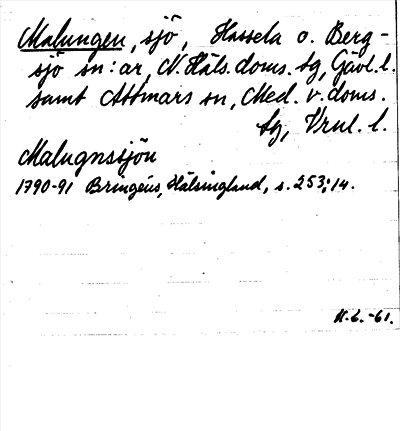 Malungen, sjö, Hassela o. Berg-
sjö sn:ar, N. Häls. doms. tg, Gävl. l.
samt Attmars sn, Med. v. doms.
tg, Vrnl. l.
Malugnssjön
1790-91 Bringéus, Hälsingland, s. 253; 14.
N.L. -61.